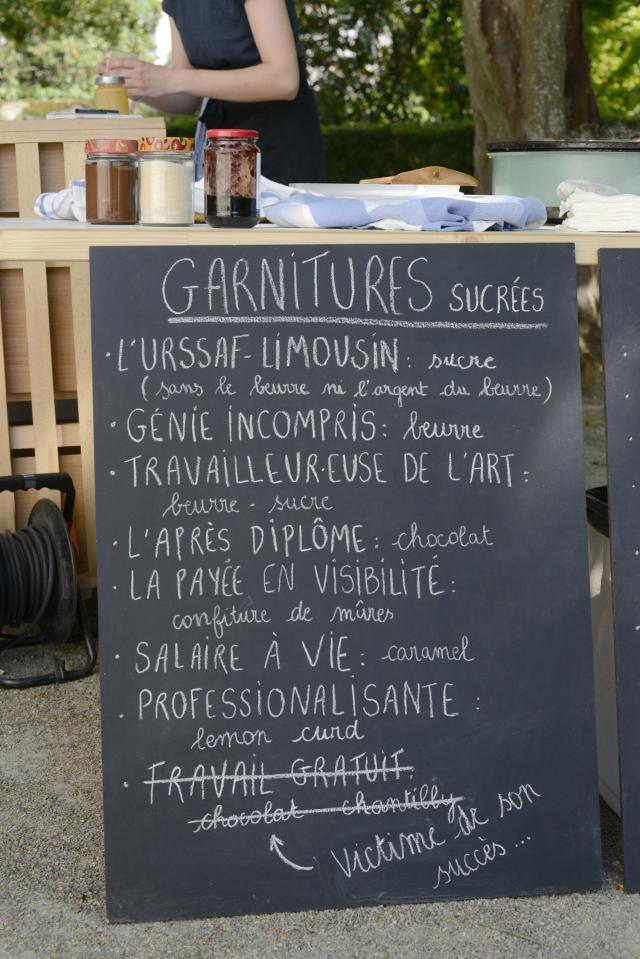 GARNITURES SUCRÉES
· L'URSSAF-LIMOUSIN : sucre
(sans le beurre ni l'argent du beurre)
· GÉNIE INCOMPRIS : beurre
· TRAVAILLEUR·EUSE DE L'ART :
beurre - sucre
· L'APRÈS DIPLÔME : chocolat
· LA PAYÉE EN VISIBILITÉ :
confiture de mûres
· SALAIRE À VIE : caramel
· PROFESSIONALISANTE :
lemon curd
· TRAVAIL GRATUIT :
chocolat chantilly
Victime de son
succès...